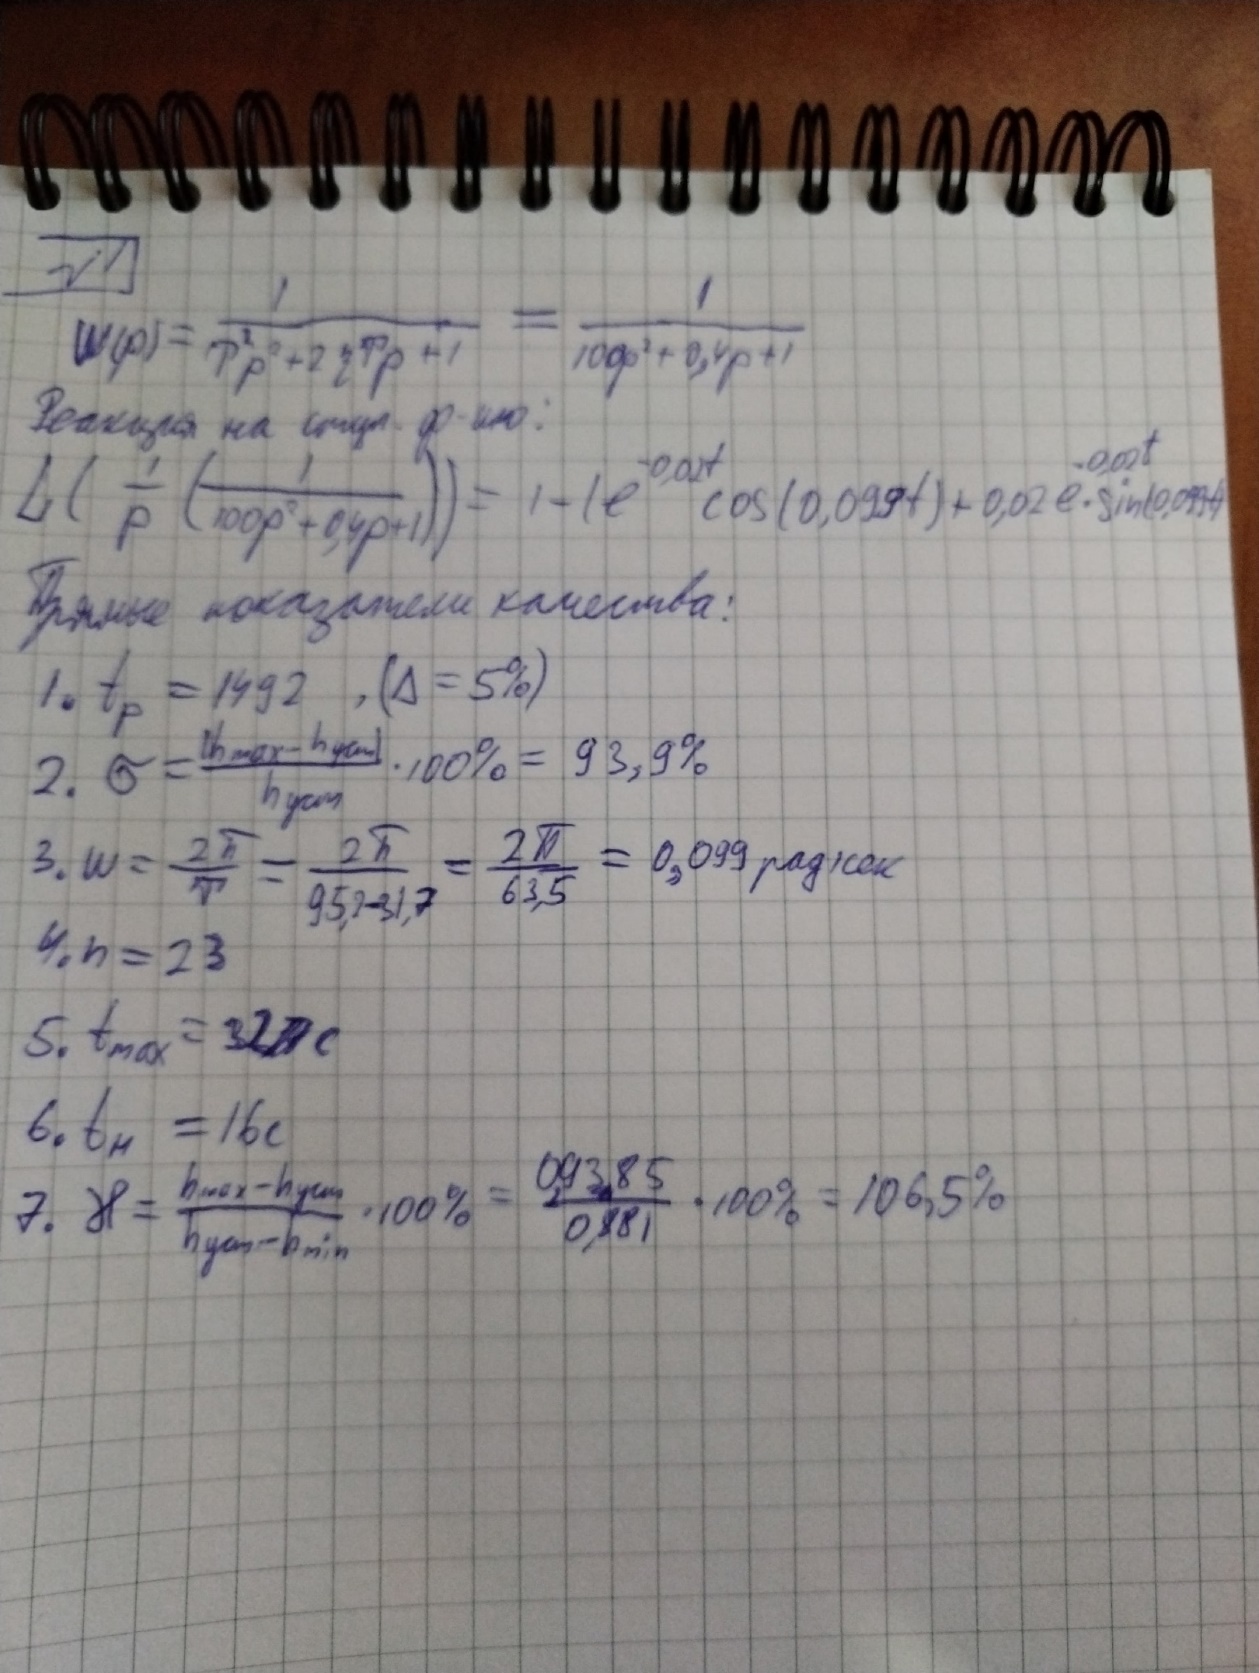 √1
W(p) = 1 / (T²p² + 2ξTp + 1) = 1 / (100p² + 0,4p + 1)
Реакция на ступ. ф-ию:
L( 1/p ( 1 / (100p² + 0,4p + 1) ) ) = 1 - (e^(-0,02t) cos(0,099t) + 0,02 e^(-0,02t) · sin(0,099t)
Прямые показатели качества:
1. tр = 1492 , (Δ = 5%)
2. σ = |hmax - hуст| / hуст · 100% = 93,9%
3. w = 2π/T = 2π / (95,2-31,7) = 2π / 63,5 = 0,099 рад/сек
4. n = 23
5. tmax = 32 с
6. tн = 16с
7. ϰ = (hmax - hуст) / (hуст - hmin) · 100% = / 0,881 · 100% = 106,5%